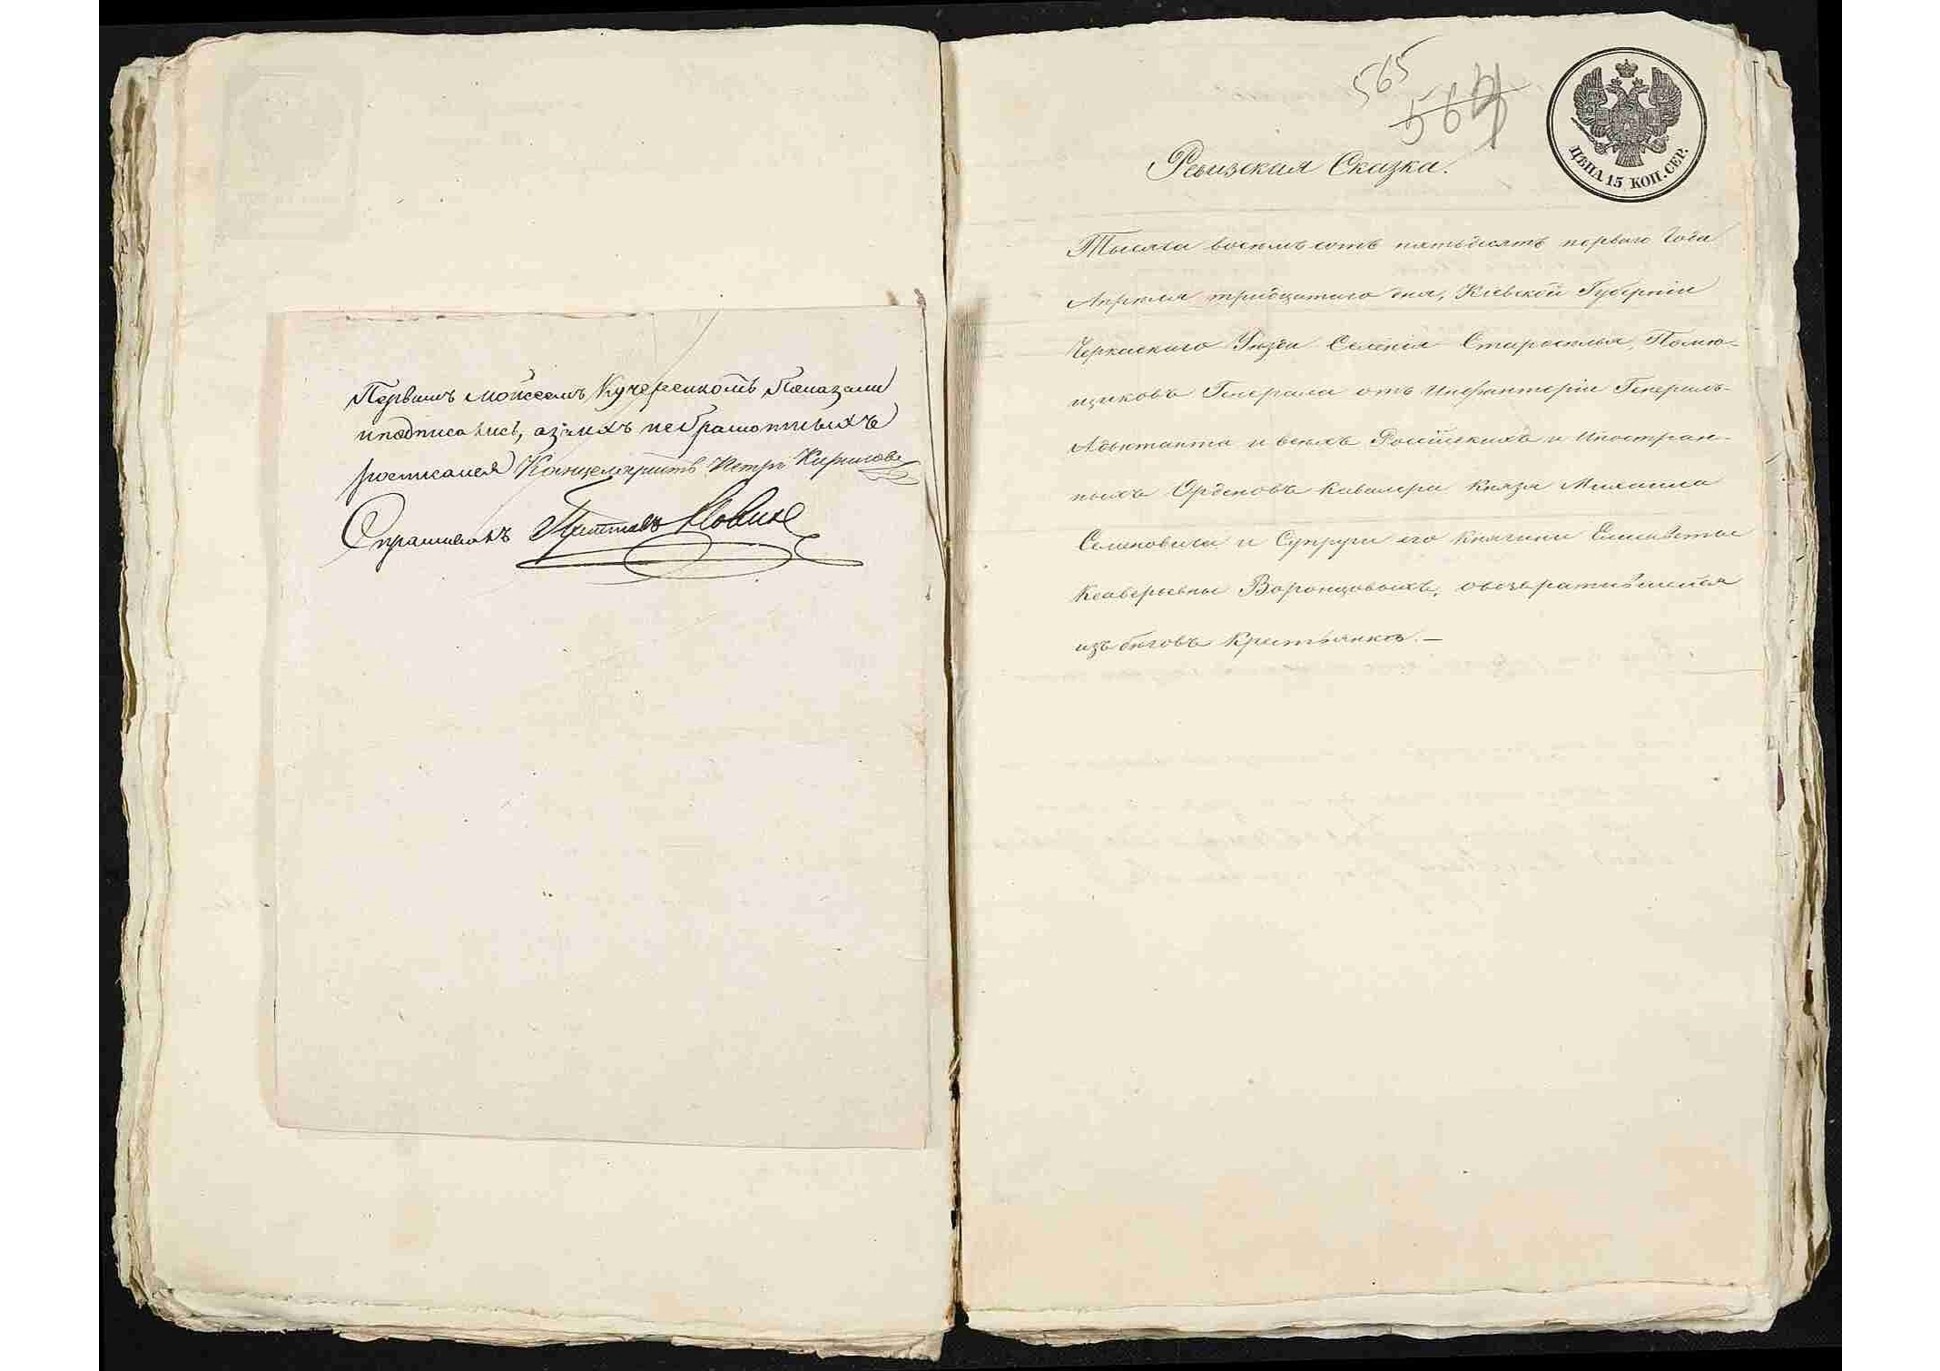 Первымъ Мойсеемъ Кучеренкомъ Показали
и подписались, а за ихъ неграмотныхъ
росписался Канцеляристъ Петръ Кириловъ
Спрашивалъ Приставъ
565
564
Ревизская Сказка.
ЦѢНА 15 КОП. СЕР.
Тысяча восемьсотъ пятьдесятъ перваго Года
Апреля тридцатаго дня, Кіевской Губерніи
Черкаскаго Уѣзда Селенія Староселья, Помѣ-
щиковъ Генерала отъ Инфантеріи Генералъ-
Адьютанта и всехъ Россійскихъ и Иностран-
ныхъ Орденовъ Кавалера Князя Михаила
Семеновича и Супруги его Княгини Елисаветы
Ксаверьевны Воронцовыхъ, о возвратившейся
изъ бѣговъ Крестьянкѣ. —